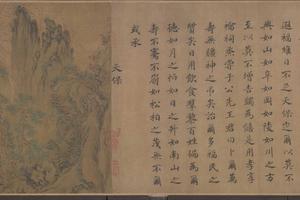 遐福維日不足天保定爾以莫不
興如山如阜如岡如陵如川之方
至以莫不增吉蠲為饎是用孝享
禴祠烝嘗于公先王君曰卜爾萬
壽無疆神之弔矣詒爾多福民之
質矣日用飲食羣黎百姓徧為爾
德如月之恒如日之升如南山之
壽不騫不崩如松柏之茂無不爾
或承
天保